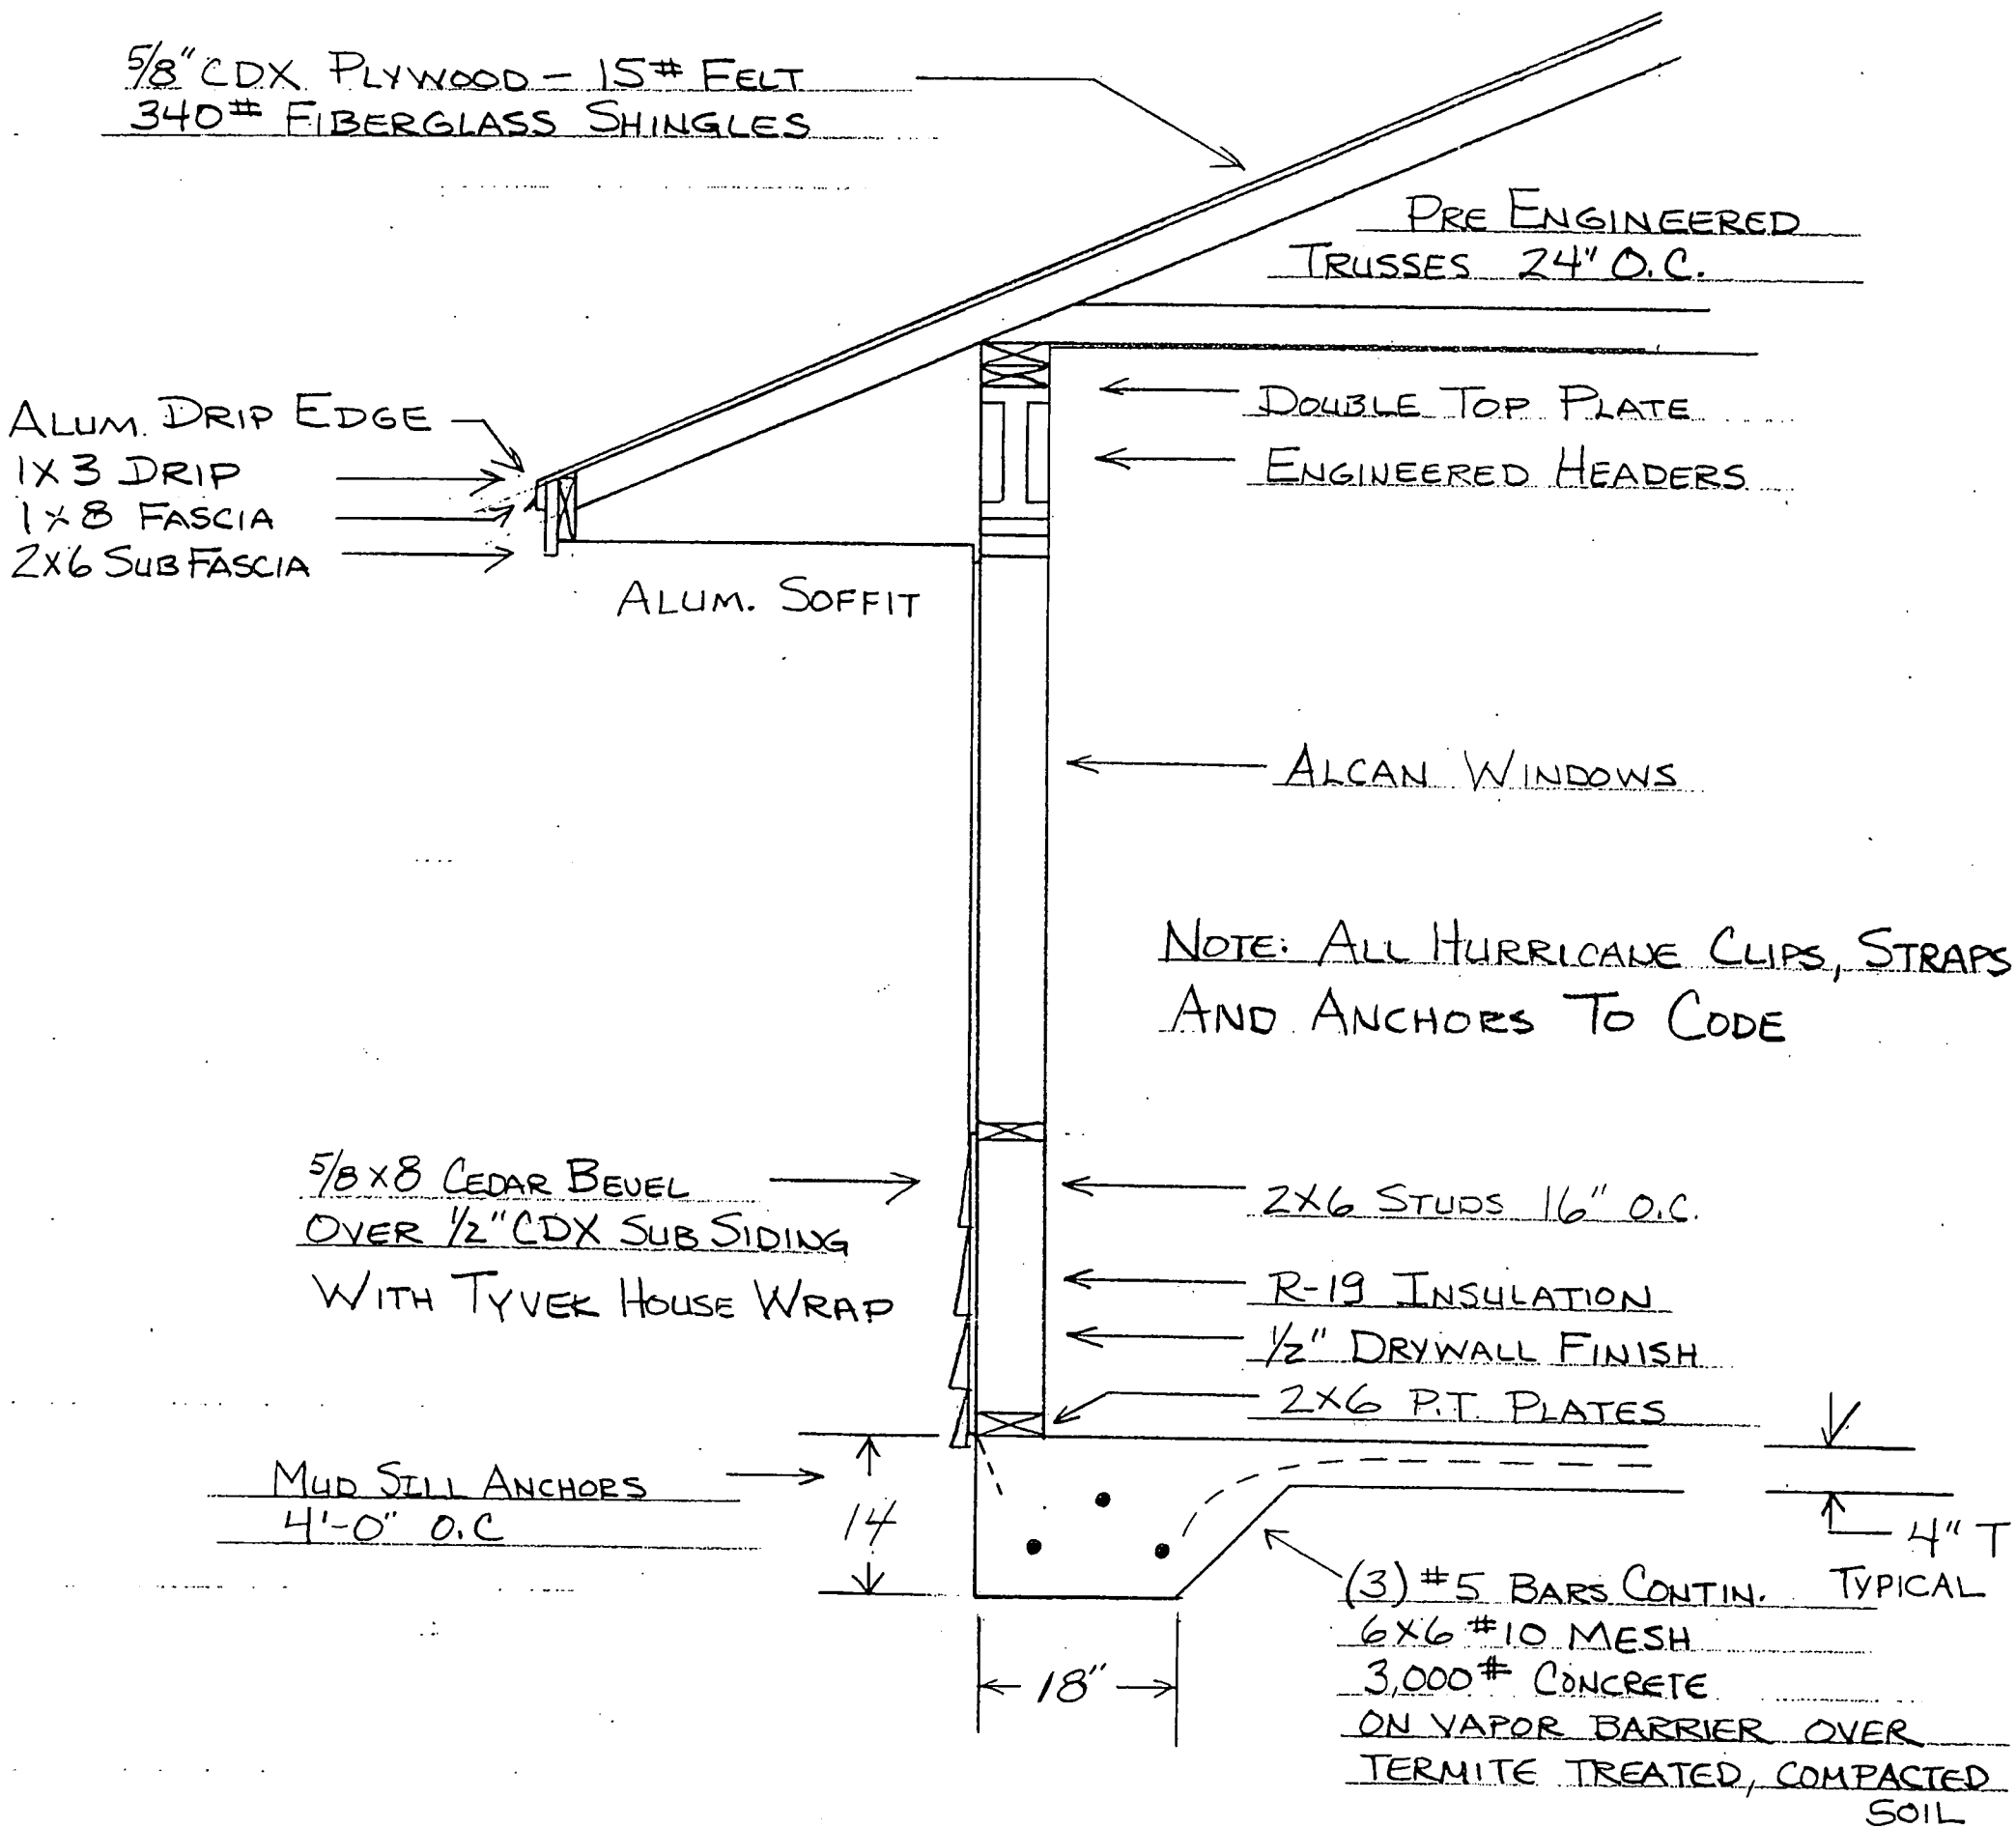 5/8" CDX PLYWOOD - 15# FELT
340# FIBERGLASS SHINGLES
PRE ENGINEERED
TRUSSES 24" O.C.
ALUM. DRIP EDGE
1X3 DRIP
1X8 FASCIA
2X6 SUB FASCIA
ALUM. SOFFIT
DOUBLE TOP PLATE
ENGINEERED HEADERS
ALCAN WINDOWS
NOTE: ALL HURRICANE CLIPS, STRAPS
AND ANCHORS TO CODE
5/8 X 8 CEDAR BEVEL
OVER 1/2" CDX SUB SIDING
WITH TYVEK HOUSE WRAP
2X6 STUDS 16" O.C.
R-19 INSULATION
1/2" DRYWALL FINISH
2X6 P.T. PLATES
MUD SILL ANCHORS
4'-0" O.C
14
18"
4" T
TYPICAL
(3) #5 BARS CONTIN.
6X6 #10 MESH
3,000# CONCRETE
ON VAPOR BARRIER OVER
TERMITE TREATED, COMPACTED
SOIL